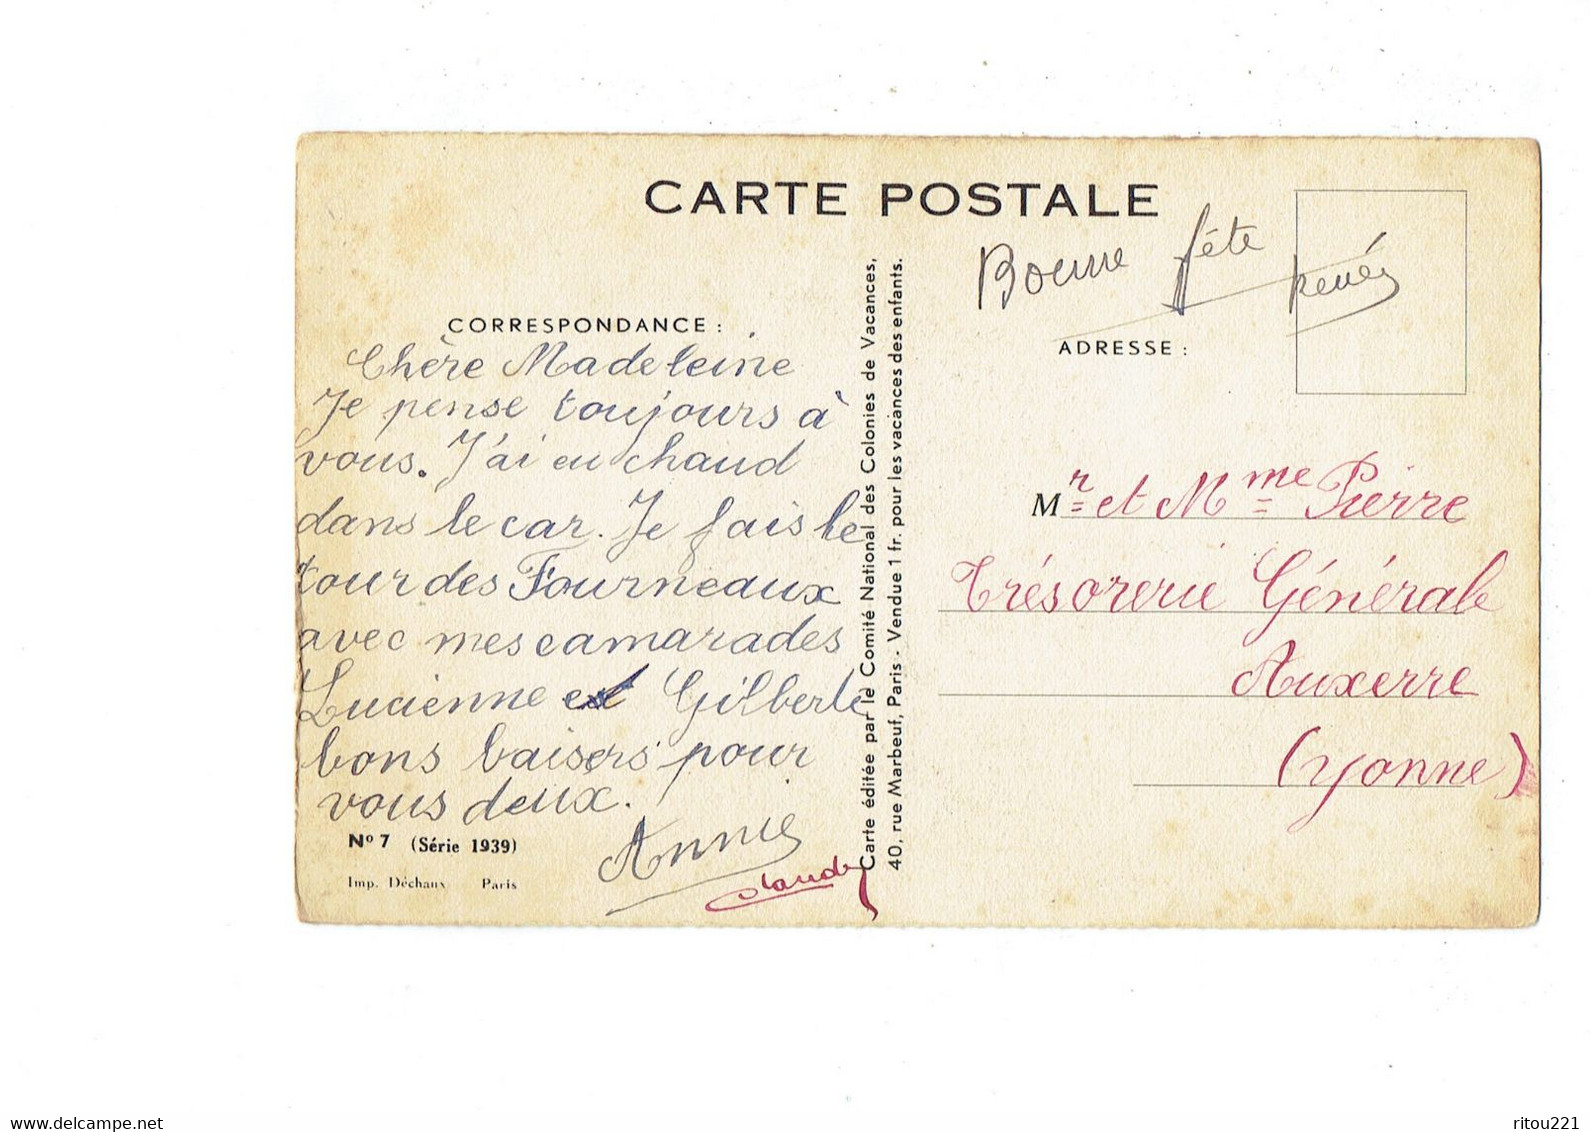 CARTE POSTALE
Bonne fête
Renée
CORRESPONDANCE :
Chère Madeleine
Je pense toujours à
vous. J'ai eu chaud
dans le car. Je fais le
tour des Fourneaux
avec mes camarades
Lucienne et Gilberte
bons baisers pour
vous deux.
Annie
Claude
Nº 7 (Série 1939)
Imp. Déchaux Paris
Carte éditée par le Comité National des Colonies de Vacances,
40, rue Marbeuf, Paris - Vendue 1 fr. pour les vacances des enfants.
ADRESSE :
Mr et Mme Pierre
Trésorerie Générale
Auxerre
(Yonne)
www.delcampe.net
ritou221